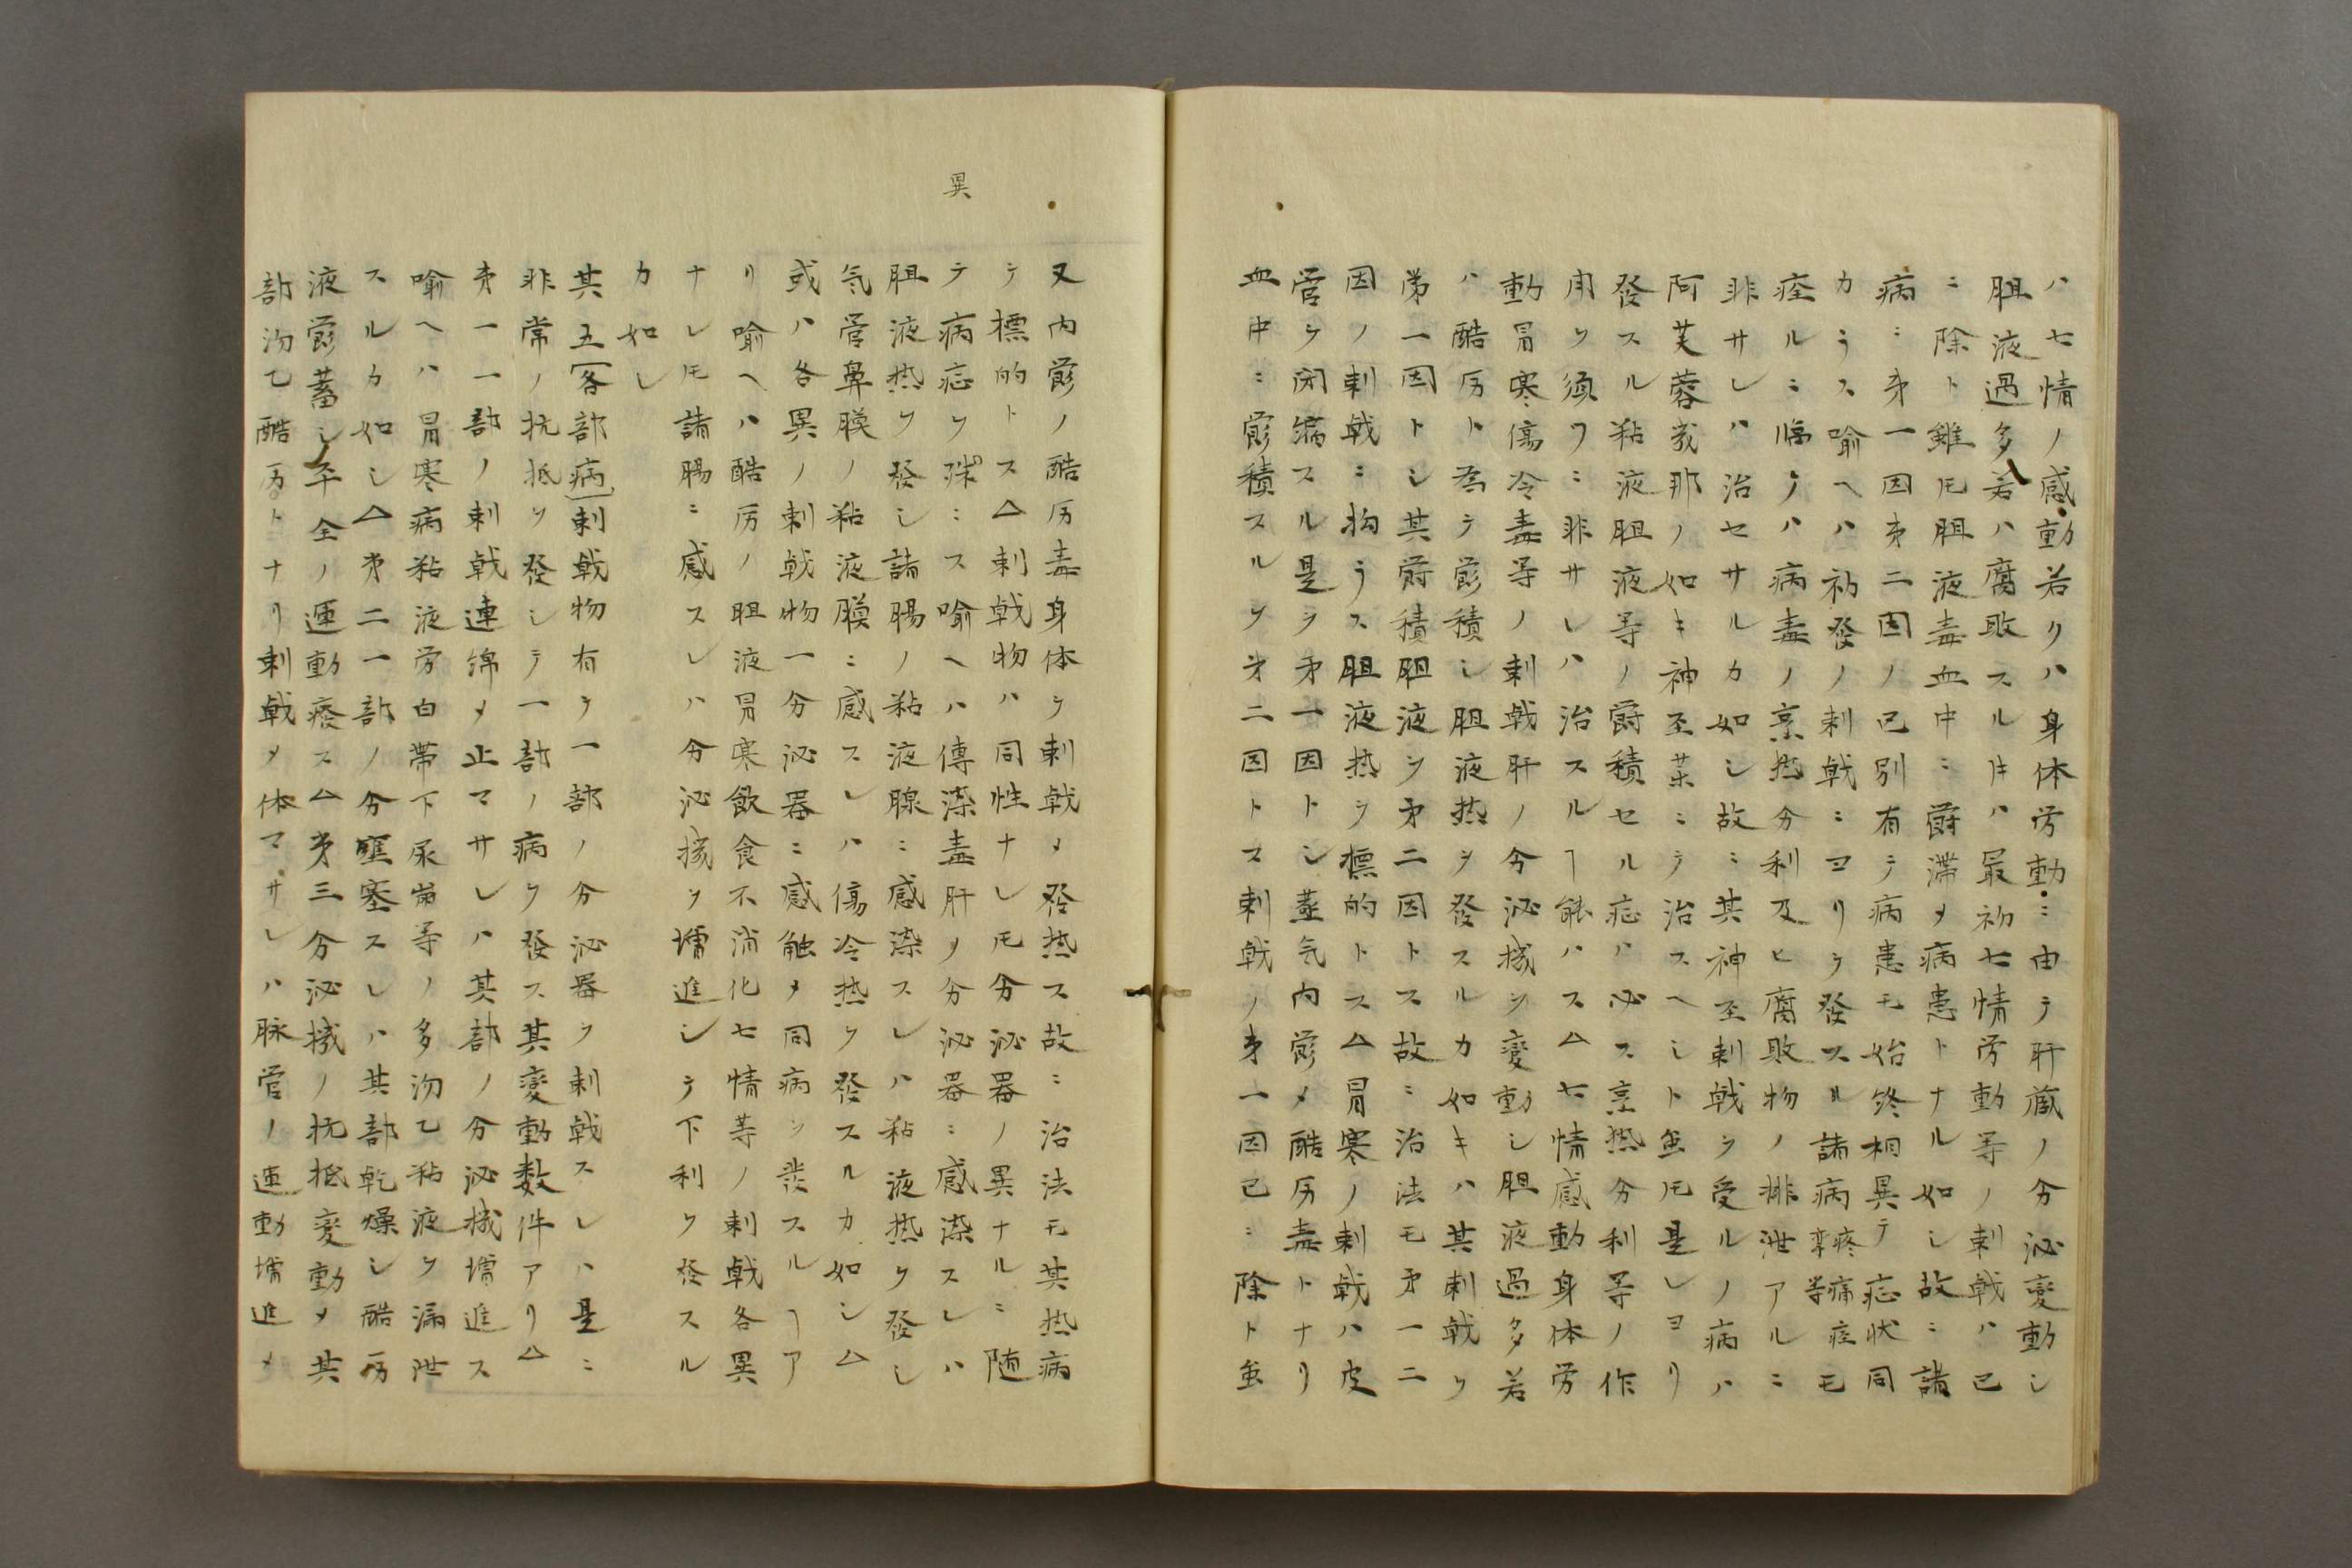 ハ七情ノ感動若クハ身体労動ニ由テ肝蔵ノ分泌変動シ
胆液過多若ハ腐敗スル片ハ最初七情労動等ノ刺戟ハ已
ニ除ト雖𪜈胆液毒血中ニ欝滞〆病患トナル如シ故ニ諸
病ニ㐧一因㐧二因ノ已別有テ病患モ始終相異テ症状同
カラス喩ヘハ初發ノ刺戟ニヨリテ發スル諸病疼痛痙攣等モ
痊ルニ臨テハ病毒ノ烹熱分利及ヒ腐敗物ノ排泄アルニ
非サレハ治セサルカ如シ故ニ其神至刺戟ヲ受ルノ病ハ
阿芙蓉幾那ノ如キ神至薬ニテ治スヘシト虽𪜈是レヨリ
發スル粘液胆液等ノ欝積セル症ハ必ス烹熱分利等ノ作
用ヲ須ツニ非サレハ治スルヿ能ハス△七情感動身体労
動冒寒傷冷毒等ノ刺戟肝ノ分泌機ヲ変動シ胆液過多若
ハ酷厉ト為テ欝積シ胆液熱ヲ發スルカ如キハ其刺戟ヲ
第一因トシ其欝積胆液ヲ㐧二因トス故ニ治法モ㐧一二
因ノ刺戟ニ拘ラス胆液熱ヲ標的トス△冒寒ノ刺戟ハ皮
管ヲ閉縮スル是ヲ㐧一因トシ蒸気内欝〆酷厉毒トナリ
血中ニ欝積スルヲ㐧二因トス刺戟ノ㐧一因已ニ除ト虽
又内欝ノ酷厉毒身体ヲ刺戟〆發熱ス故ニ治法モ其熱病
ヲ標的トス△刺戟物ハ同性ナレ𪜈分泌器ノ異ナルニ随
テ病症ヲ殊ニス喩ヘハ傳染毒肝〆分泌器ニ感染スレハ
異
胆液熱ヲ發シ諸腸ノ粘液腺ニ感染スレハ粘液熱ヲ發シ
気管鼻膜ノ粘液膜ニ感スレハ傷冷熱ヲ發スルカ如シ△
或ハ各異ノ刺戟物一分泌器ニ感触〆同病ヲ發スルヿア
リ喩ヘハ酷厉ノ胆液冒寒飲食不消化七情等ノ刺戟各異
ナレ𪜈諸腸ニ感スレハ分泌機ヲ増進シテ下利ヲ發スル
カ如シ
其五各部病刺戟物有テ一部ノ分泌器ヲ刺戟スレハ是ニ
非常ノ抗抵ヲ發シテ一部ノ病ヲ發ス其変動数件アリ△
㐧一一部ノ刺戟連綿〆止マサレハ其部ノ分泌機増進ス
喩ヘハ冒寒病粘液労白帯下尿崩等ノ多汤乙粘液ヲ漏泄
スルカ如シ△㐧二一部ノ分壅塞スレハ其部乾燥シ酷厉
液欝蓄シ平全ノ運動癈ス△㐧三分泌機ノ抗抵変動〆其
部汤乙酷厉トナリ刺戟〆休マサレハ脉管ノ運動増進〆